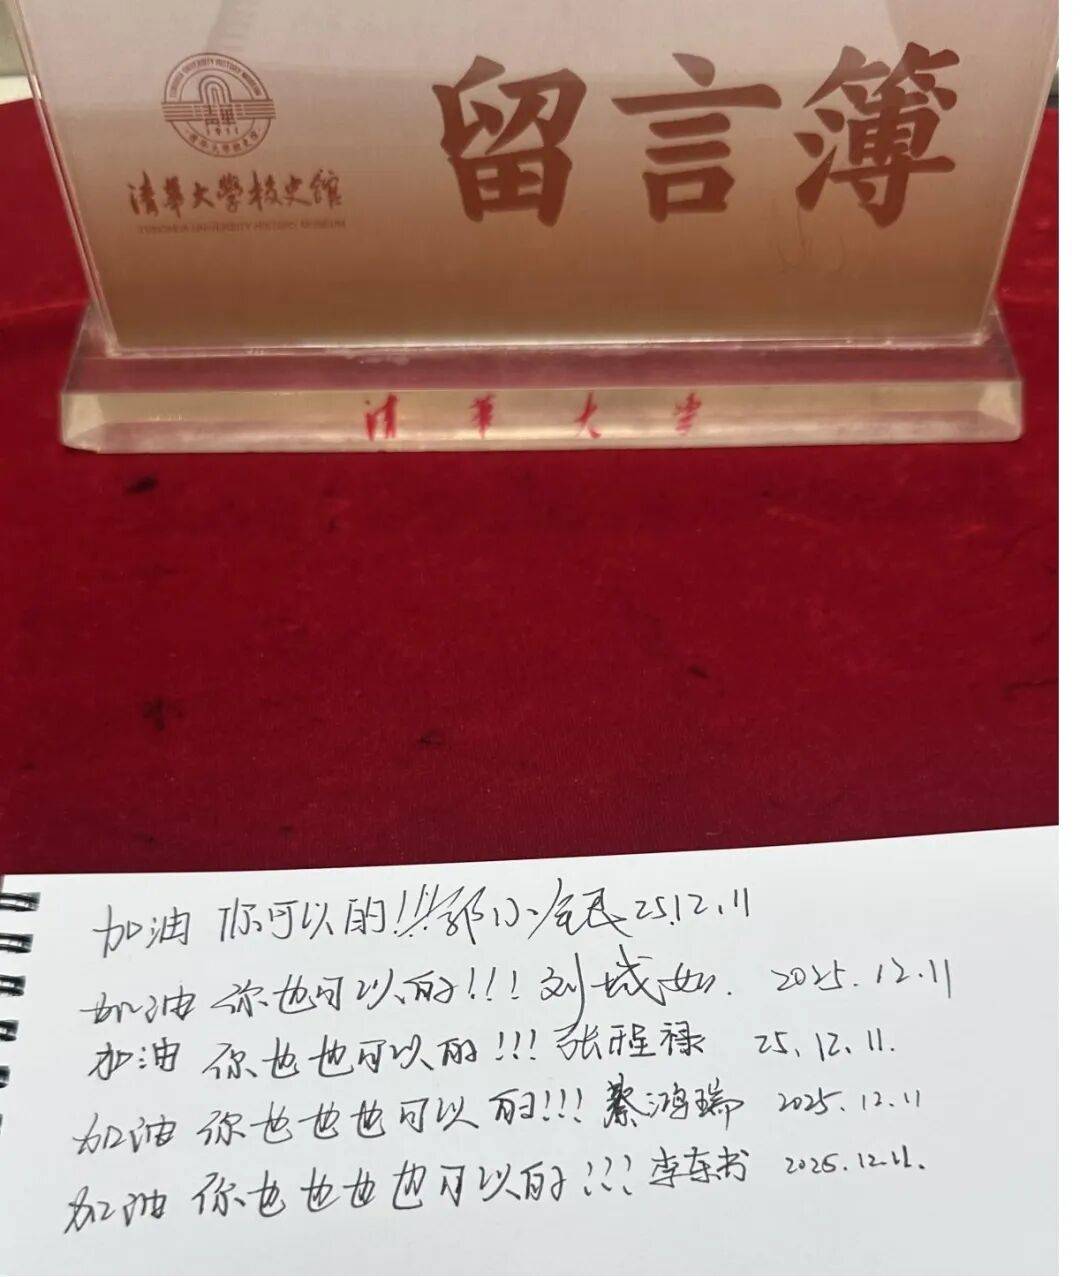 TSINGHUA UNIVERSITY HISTORY MUSEUM
清華
1911
清华大学校史馆
留言簿
清華大学校史館
TSINGHUA UNIVERSITY HISTORY MUSEUM
清華大学
加油 你可以的!!!郭小 25.12.11
加油 你也可以的!!!刘城如. 2025.12.11
加油 你也也可以的!!!张程禄 25.12.11.
加油 你也也也可以的!!!蔡鸿瑞 2025.12.11
加油 你也也也也可以的!!!李东书 2025.12.11.